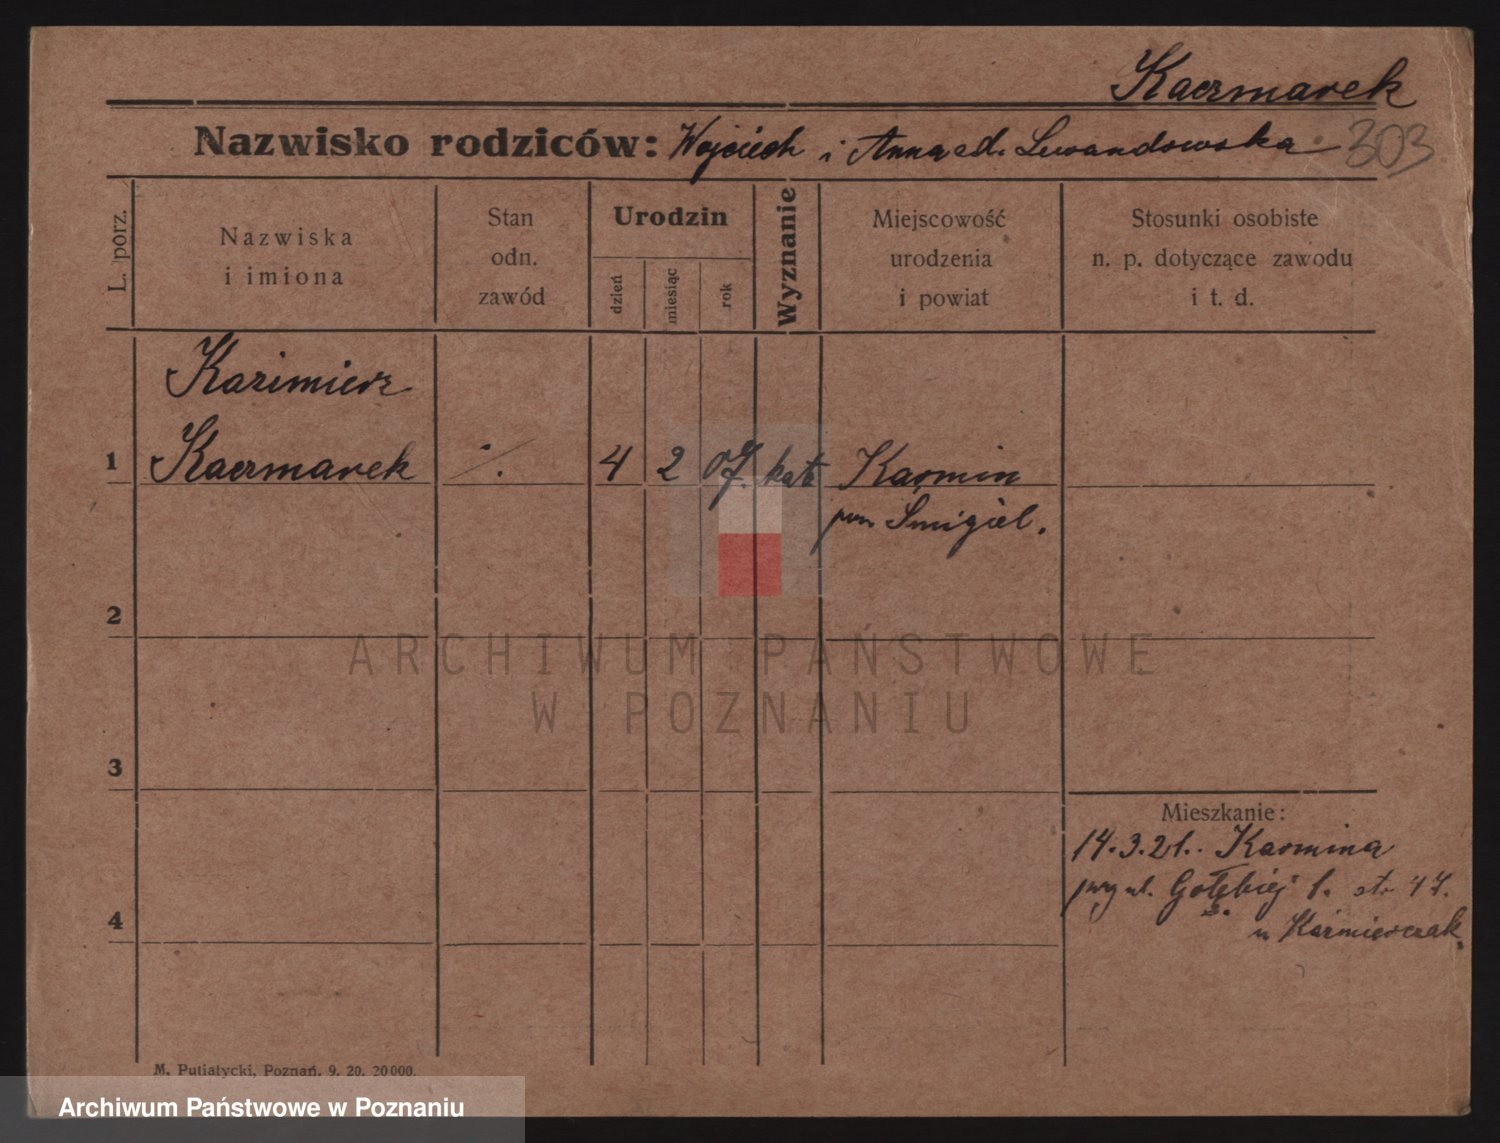 Kaczmarek
Nazwisko rodziców: Wojciech i Anna Lewandowska 303
L. porz.
Nazwiska
i imiona
Stan
odn.
zawód
Urodzin
dzień
miesiąc
rok
Wyznanie
Miejscowość
urodzenia
i powiat
Stosunki osobiste
n. p. dotyczące zawodu
i t. d.
Kazimierz
1 Kaczmarek ./. 4 2 07. kat. Karmin
pow Śmigiel.
2
ARCHIWUM PAŃSTWOWE
W POZNANIU
3
Mieszkanie:
14.3.21. Karmina
przy ul. Gołębiej 1. str 47.
u Kaźmierczak.
4
M. Putiatycki, Poznań. 9. 20. 20000.
Archiwum Państwowe w Poznaniu